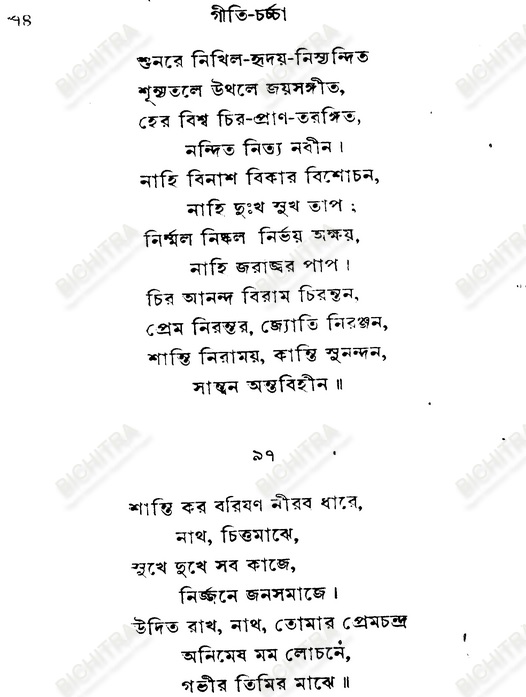 ৭৪
গীতি-চর্চ্চা
শুনরে নিখিল-হৃদয়-নিস্যন্দিত
শূন্যতলে উথলে জয়সঙ্গীত,
হের বিশ্ব চির-প্রাণ-তরঙ্গিত,
নন্দিত নিত্য নবীন।
নাহি বিনাশ বিকার বিশোচন,
নাহি দুঃখ সুখ তাপ ;
নির্ম্মল নিষ্কল নির্ভয় অক্ষয়,
নাহি জরাজ্বর পাপ।
চির আনন্দ বিরাম চিরন্তন,
প্রেম নিরন্তর, জ্যোতি নিরঞ্জন,
শান্তি নিরাময়, কান্তি সুনন্দন,
সান্ত্বন অন্তবিহীন॥
৯৭
শান্তি কর বরিষণ নীরব ধারে,
নাথ, চিত্তমাঝে,
সুখে দুখে সব কাজে,
নির্জ্জনে জনসমাজে।
উদিত রাখ, নাথ, তোমার প্রেমচন্দ্র
অনিমেষ মম লোচনে,
গভীর তিমির মাঝে॥
BICHITRA